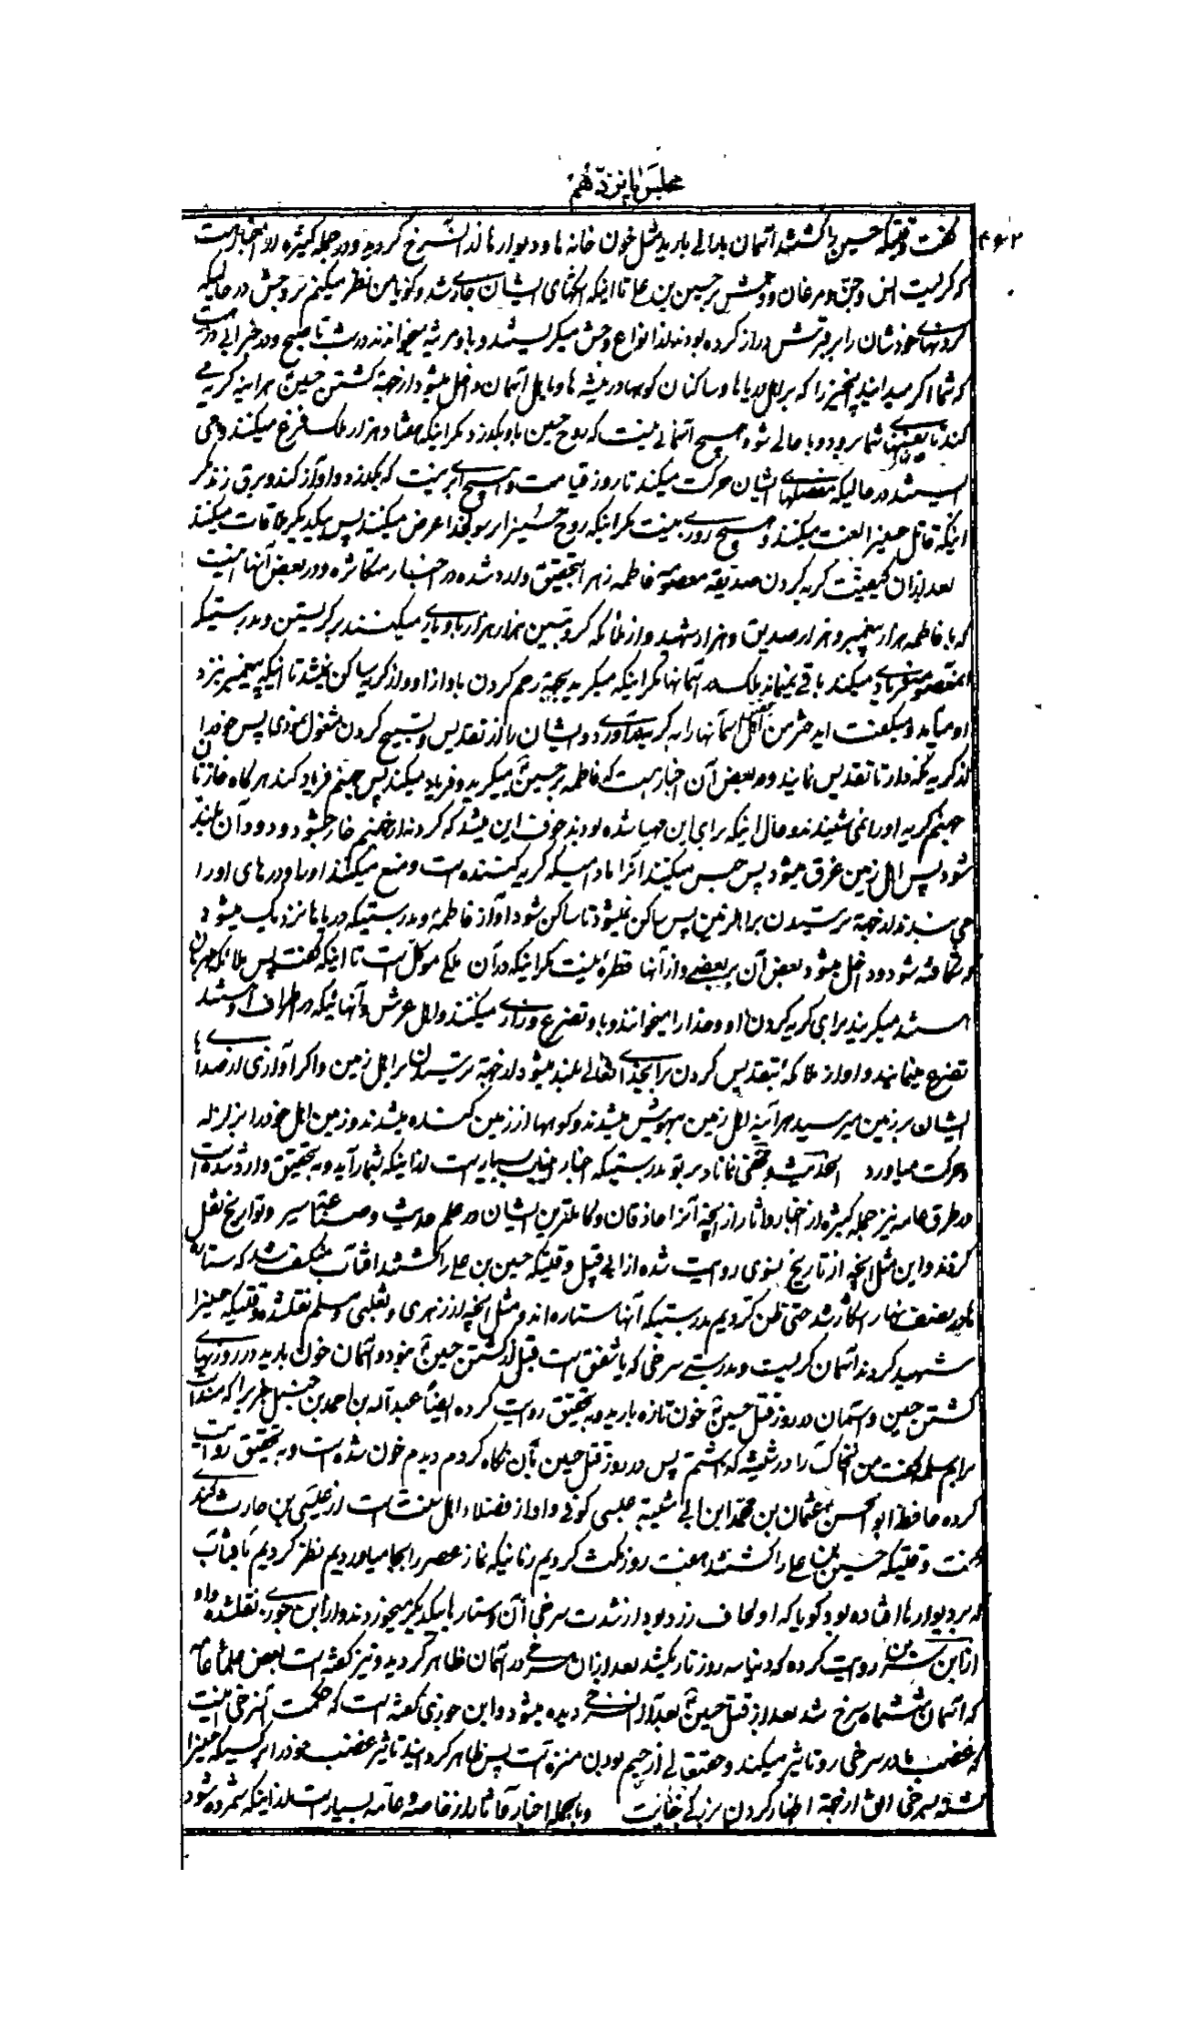 مجلس پانزدهم
۴۶۲
گفت وقتیکه حسین را کشتند آسمان بارانی بارید مثل خون خانه ها و دیوارها از آن سرخ گردید و در جمله کثیره از اخبار است
که گریست انس و جن و مرغان و وحش بر حسین بن علی تا اینکه اشکهای ایشان جاری شد و گویا من نظر میکنم بر وحش در حالیکه
گردنهای خودشان را بر قبرش دراز کرده بودند از انواع وحش میگریستند و باو مرثیه میخواندند در شب تا صبح و در خبر
که شما اگر میدانید چیزی را که بر اهل دریاها و ساکنان کوهها و در بیشه ها و اهل آسمان داخل میشود از جهة کشتن حسین هر آینه گریه می
کنید تا شما برود و با حالی شود هیچ آسمانی نیست که روح حسین باو بگذرد مگر اینکه هفتاد هزار ملک فزع میکنند و می
ایستند در حالیکه مفصلهای ایشان حرکت میکند تا روز قیامت و هیچ ابری نیست که بگذرد و آواز کند و برق زند مگر
اینکه قاتل حسین را لعنت میکنند و هیچ روزی نیست مگر اینکه روح حسین را بر رسول خدا عرض میکنند پس بیکدیگر ملاقات میکنند
بعد از آن کیفیت گریه کردن صدیقه معصومه فاطمه زهرا بتحقیق وارد شده در اخبار متکاثره و در بعض آنها اینست
که با فاطمه هزار پیغمبر و هزار صدیق و هزار شهید و از ملائکه کروبیین هزار هزار باو یاری میکنند بر گریستن و بدرستیکه
فریاد میکند باقی نمیماند ملک در آسمانها مگر اینکه میگرید بجهة رحم کردن باواز او و از گریه ساکن نمیشد تا اینکه پیغمبر نزد
او میآید و میگفت ای دختر من اهل آسمانها را به گریه آوردی و ایشان را از تقدیس و تسبیح کردن مشغول نمودی پس خود را
از گریه نگه دار تا تقدیس نمایند و در بعض آن اخبار است که فاطمه بر حسین میگرید و فریاد میکند پس جهنم فریاد کند هر گاه خازنان
جهنم گریه او را می شنیدند و حال اینکه برای این مهیا شده بودند خوف این میشد که گردن از جهنم خارج شود و دود آن بلند
شود پس اهل زمین غرق میشود پس حبس میکنند آنرا مادامیکه گریه کننده است و منع میکنند او را و درهای او را
می بندند از جهة ترسیدن بر اهل زمین پس ساکن نمیشود تا ساکن شود آواز فاطمه و بدرستیکه دریاها نزدیک میشود
که شکافته شود و داخل میشود بعض آن بر بعضی و از آنها قطرۀ نیست مگر اینکه در آن ملکی موکل است تا اینکه گفت پس ملائکه مهربان
هستند میگریند برای گریه کردن او و خدا را میخوانند و باو تضرع و زاری میکنند و اهل عرش و آنهائیکه در اطراف او هستند
تضرع مینمایند و آواز ملائکه بتقدیس کردن برای خدایتعالی بلند میشود از جهة ترسیدن بر اهل زمین و اگر آوازی از صداهای
ایشان بر زمین میرسید هر آینه اهل زمین بیهوش میشدند و کوهها از زمین کنده میشدند و زمین اهل خود را بزلزله
و حرکت میاورد الحدیث و مخفی نماناد بر تو بدرستیکه اخبار بسیار است از اینکه بشمار آید و بتحقیق وارد شده است
در طرق عامه نیز جمله کثیره از اخبار و آثار از آنچه آنرا حاذقان و کاملترین ایشان در علم حدیث و صناعت سیر و تواریخ نقل
کردند و این مثل آنچه از تاریخ نسوی روایت شده از ابی قبیل وقتیکه حسین بن علی را کشتند آفتاب منکسف شد که ستاره
ها در نصف نهار آشکار شد حتی ظن کردیم بدرستیکه آنها ستاره اند و مثل آنچه از زهری و ثعلبی و مسلم نقلشده وقتیکه حسین را
شهید کردند آسمان گریست و بدرستی سرخی که با شفق است قبل از کشتن حسین نبود و آسمان خون بارید در روزهای
کشتن حسین و آسمان در روز قتل حسین خون تازه بارید و بتحقیق روایت کرده ایضا عبدالله بن احمد بن حنبل
ام سلمه گفت من آن خاک را در شیشه گذاشتم پس در روز قتل حسین بآن نگاه کردم دیدم خون شده است و بتحقیق روایت
کرده حافظ ابو الحسن عثمان بن محمد ابن ابی شیبة عبسی کوفی و او از فضلاء اهل سنت است از عیسی بن حارث کندی
گفت وقتیکه حسین بن علی را کشتند هفت روز مکث کردیم زمانیکه نماز عصر را بجا میاوردیم نظر کردیم بآفتاب
که بر دیوارها افتاده بود گویا که او لحاف زرد بود از شدت سرخی آن و ستارها بیکدیگر میخوردند و از ابن جوزی نقلشده و او
از ابن سیرین روایت کرده که دنیا سه روز تاریک شد بعد از آن سرخی در آسمان ظاهر گردید و نیز گفته است بعض علماء عامه
که آسمان ششماه سرخ شد بعد از قتل حسین بعد از آن سرخی دیده میشود و ابن جوزی گفته است که حکمت آن سرخی اینست
که غضب ما در سرخی رو تاثیر میکند و حقتعالی از جسم بودن منزه است پس ظاهر گردانید تاثیر غضب خود را بر کسیکه حسین را
کشته بسرخی افق از جهة اظهار کردن بزرگی جنایت و بالجمله اخبار و آثار از خاصه و عامه بسیار است از اینکه شمرده شود